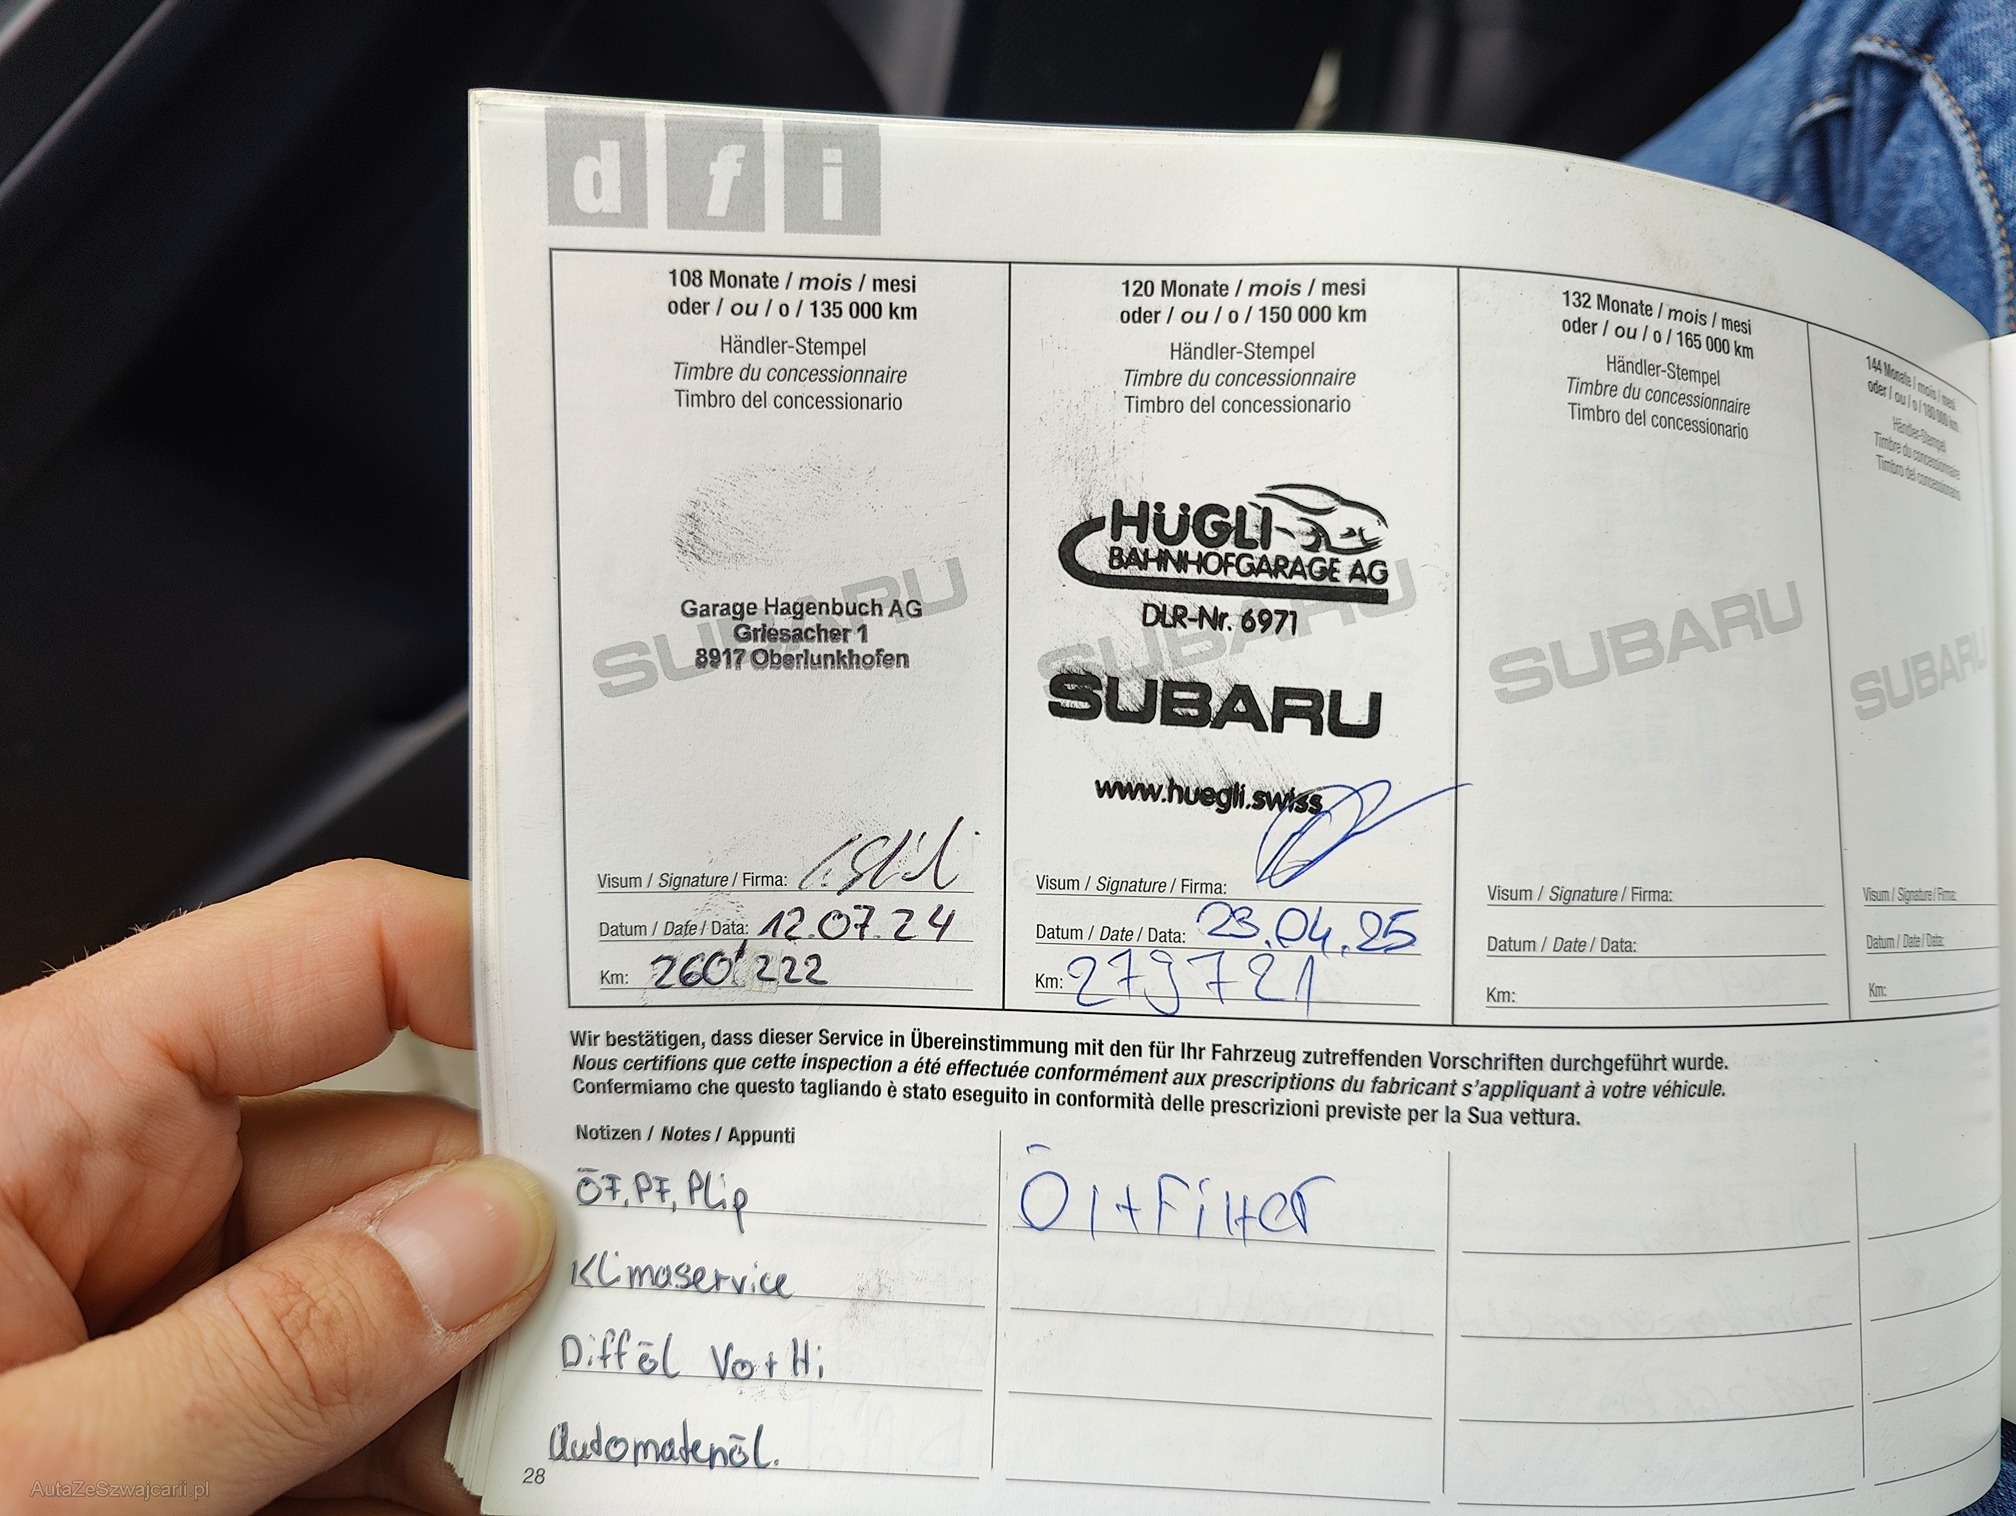 d f i
108 Monate / mois / mesi
oder / ou / o / 135 000 km
Händler-Stempel
Timbre du concessionnaire
Timbro del concessionario
SUBARU
Garage Hagenbuch AG
Griesacher 1
8917 Oberlunkhofen
Visum / Signature / Firma:
Datum / Date / Data: 12.07.24
Km: 260'222
120 Monate / mois / mesi
oder / ou / o / 150 000 km
Händler-Stempel
Timbre du concessionnaire
Timbro del concessionario
HÜGLI
BAHNHOFGARAGE AG
DLR-Nr. 6971
SUBARU
SUBARU
www.huegli.swiss
Visum / Signature / Firma:
Datum / Date / Data: 23.04.25
Km: 279721
132 Monate / mois / mesi
oder / ou / o / 165 000 km
Händler-Stempel
Timbre du concessionnaire
Timbro del concessionario
SUBARU
Visum / Signature / Firma:
Datum / Date / Data:
Km:
144 Monate / mois / mesi
oder / ou / o / 180 000 km
Händler-Stempel
Timbre du concessionnaire
Timbro del concessionario
SUBARU
Visum / Signature / Firma:
Datum / Date / Data:
Km:
Wir bestätigen, dass dieser Service in Übereinstimmung mit den für Ihr Fahrzeug zutreffenden Vorschriften durchgeführt wurde.
Nous certifions que cette inspection a été effectuée conformément aux prescriptions du fabricant s'appliquant à votre véhicule.
Confermiamo che questo tagliando è stato eseguito in conformità delle prescrizioni previste per la Sua vettura.
Notizen / Notes / Appunti
ÖF, PF, Plip
Klimaservice
Difföl Vo + Hi
Automatenöl.
Öl + Filter
28
AutaZeSzwajcarii.pl